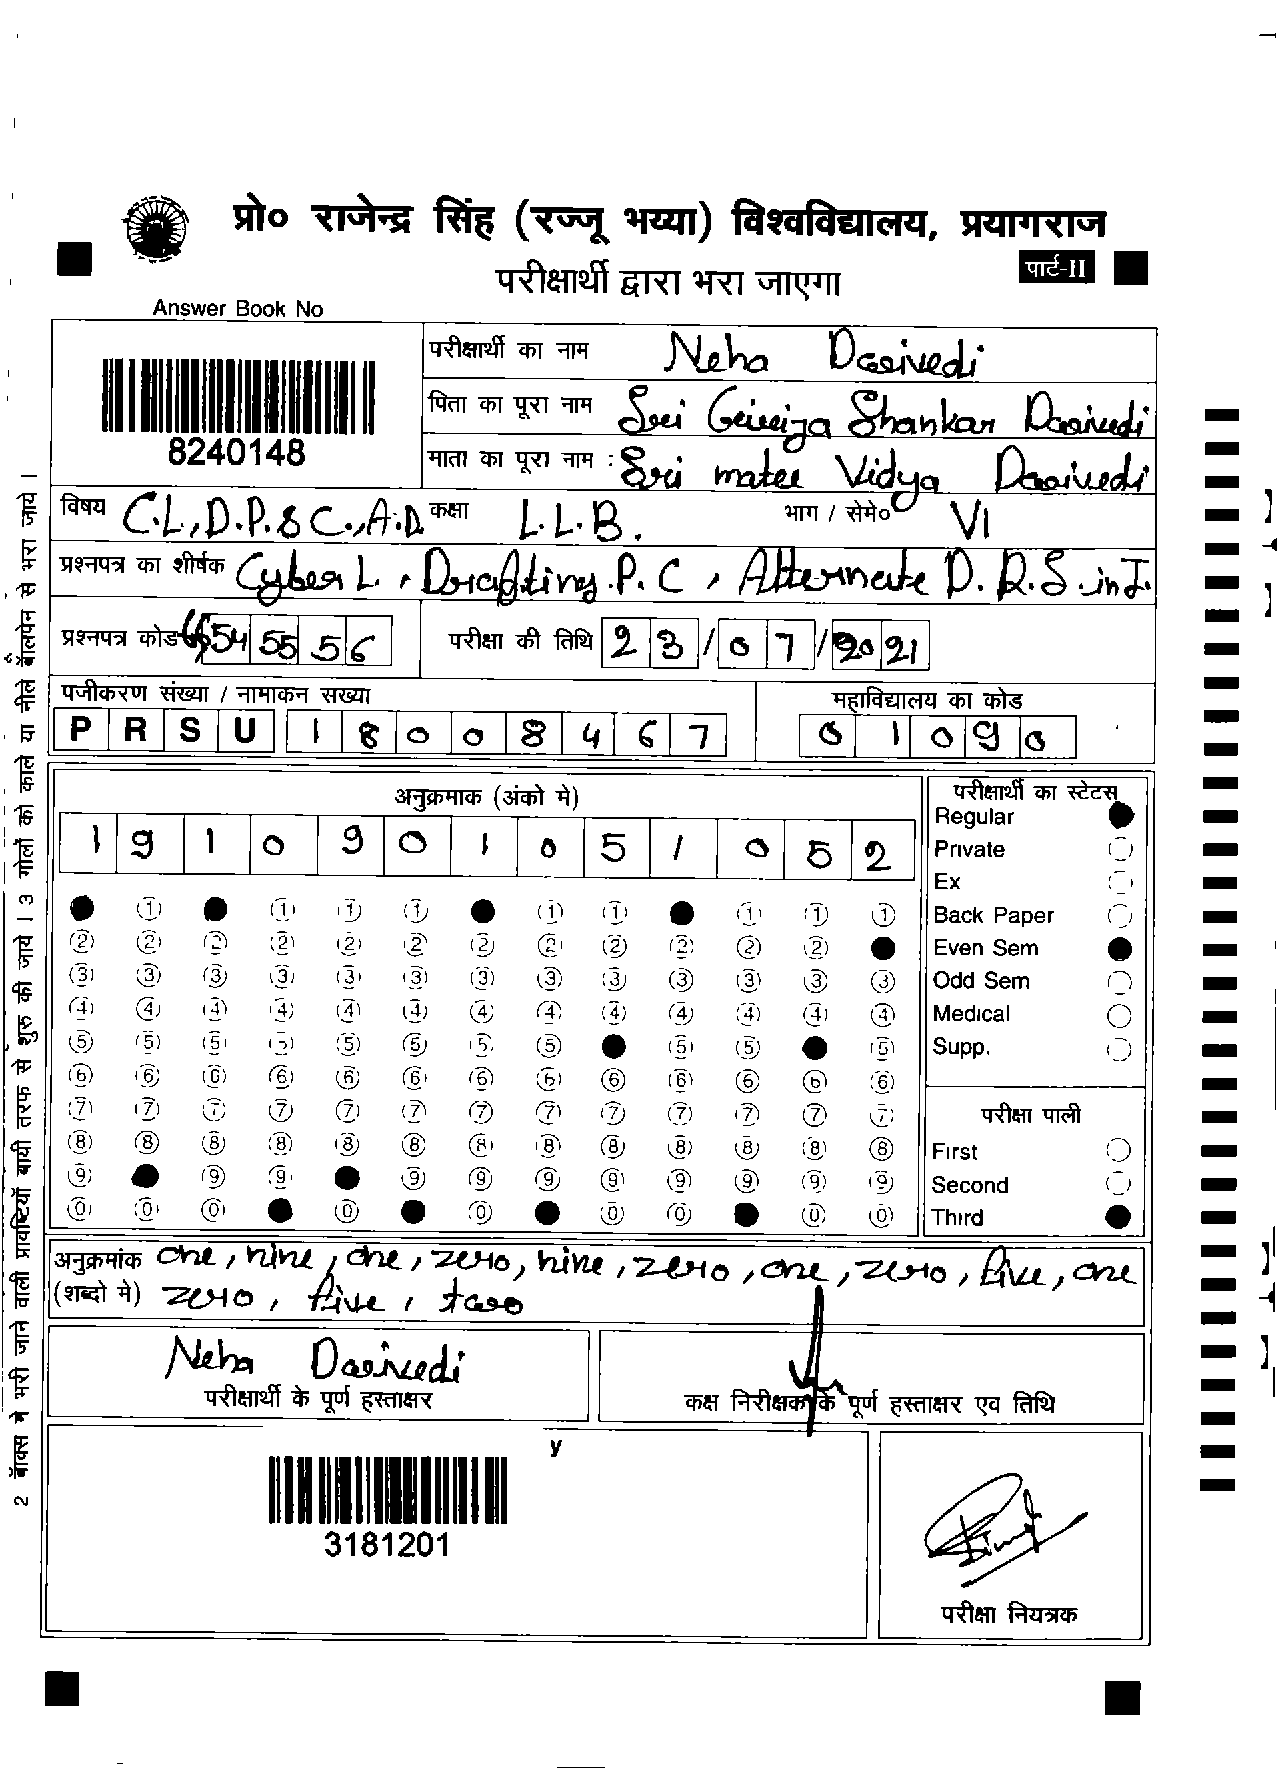 प्रो० राजेन्द्र सिंह (रज्जू भय्या) विश्वविद्यालय, प्रयागराज
परीक्षार्थी द्वारा भरा जाएगा
पार्ट-II
Answer Book No
8240148
परीक्षार्थी का नाम Neha Dwivedi
पिता का पूरा नाम Sri Girija Shankar Dwivedi
माता का पूरा नाम : Sri matee Vidya Dwivedi
विषय C.L,D.P.&C.,A.D कक्षा L.L.B. भाग / सेमे० VI
प्रश्नपत्र का शीर्षक Cyber L, Drafting.P.C, Alternate D.R.S.inI.
प्रश्नपत्र कोड 54 55 56 परीक्षा की तिथि 23/07/2021
पजीकरण संख्या / नामाकन सख्या महाविद्यालय का कोड
P R S U 1 8 0 0 8 4 6 7 0 1 0 9 0
अनुक्रमाक (अंको मे) परीक्षार्थी का स्टेटस
1 9 1 0 9 0 1 0 5 1 0 5 2
Regular
Private
Ex
Back Paper
Even Sem
Odd Sem
Medical
Supp.
परीक्षा पाली
First
Second
Third
अनुक्रमांक one, nine, one, zero, nine, zero, one, zero, five, one
(शब्दो मे) zero, five, two
Neha Dwivedi
परीक्षार्थी के पूर्ण हस्ताक्षर कक्ष निरीक्षक के पूर्ण हस्ताक्षर एव तिथि
y
3181201
परीक्षा नियत्रक
2 बॉक्स मे भरी जाने वाली प्रविष्टियाँ बायी तरफ से शुरु की जाये । 3 गोलों को काले या नीले बॉलपेन से भरा जाये ।